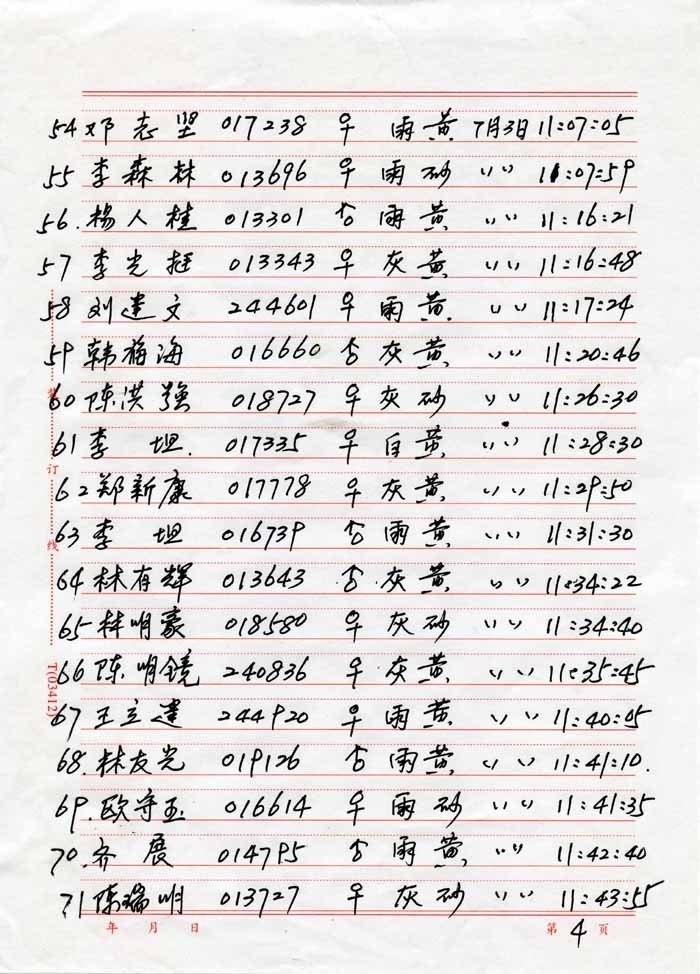 54 邓志坚 017238 ♀ 雨黄 7月3日 11:07:05
55 李森林 013696 ♀ 雨砂 〃 11:07:59
56. 杨人桂 013301 ♂ 雨黄 〃 11:16:21
57 李光挺 013343 ♀ 灰黄 〃 11:16:48
58 刘建文 244601 ♀ 雨黄 〃 11:17:24
59 韩梅海 016660 ♂ 灰黄 〃 11:20:46
60 陈洪强 018727 ♀ 灰砂 〃 11:26:30
61 李坦. 017335 ♀ 白黄 〃 11:28:30
62 郑新康 017778 ♀ 灰黄 〃 11:29:50
63 李坦 016739 ♂ 雨黄 〃 11:31:30
64 林有辉 013643 ♂ 灰黄 〃 11:34:22
65 林明豪 018580 ♀ 灰砂 〃 11:34:40
66 陈明镜 240836 ♀ 灰黄 〃 11:35:45
67 王立建 244920 ♀ 雨黄 〃 11:40:05
68. 林友光 019126 ♂ 雨黄 〃 11:41:10.
69. 欧守玉 016614 ♀ 雨砂 〃 11:41:35
70. 齐展 014795 ♂ 雨黄 〃 11:42:40
71 陈瑞明 013727 ♀ 灰砂 〃 11:43:55
装订线
T(03412)
年 月 日 第 4 页